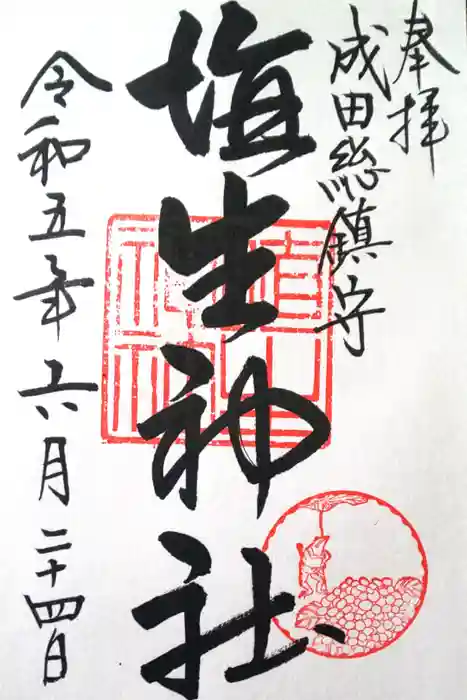 奉拝
成田総鎮守
埴生神社
令和五年六月二十四日
埴生神社